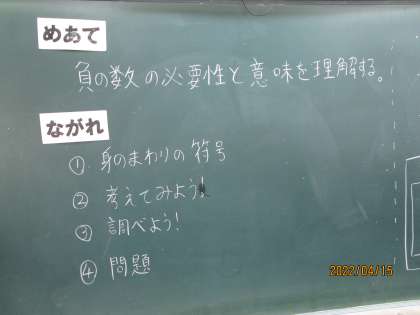 めあて
負の数の必要性と意味を理解する。
ながれ
① 身のまわりの符号
② 考えてみよう!
③ 調べよう!
④ 問題
2022/04/15